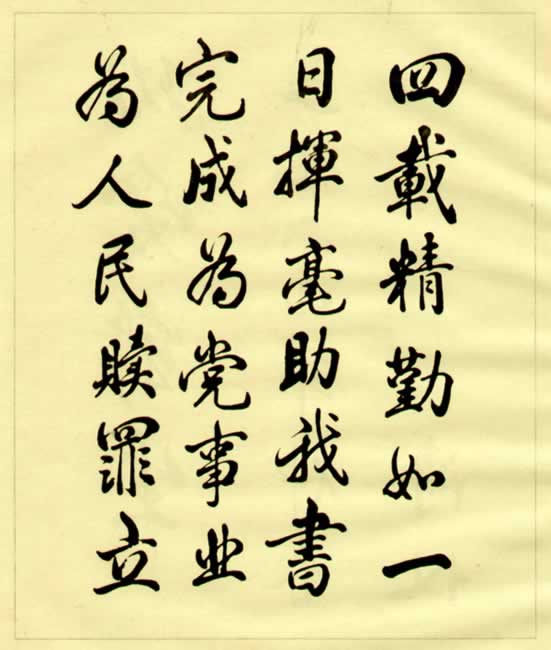 四載精勤如一
日揮毫助我書
完成為党事业
為人民贖罪立